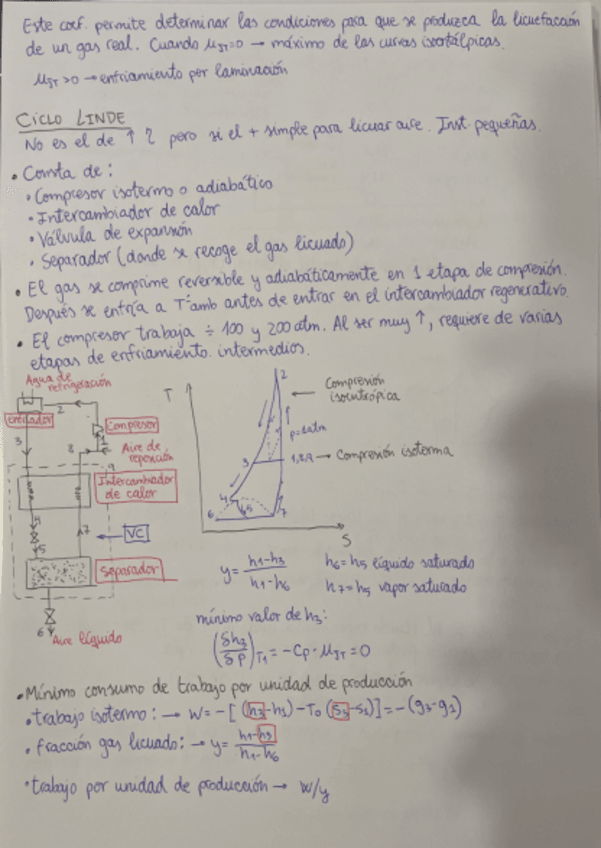 Este coef. permite determinar las condiciones para que se produzca la licuefacción
de un gas real. Cuando μJT=0 → máximo de las curvas isoentálpicas.
μJT>0 → enfriamiento por laminación
CICLO LINDE
No es el de ↑ η pero si el + simple para licuar aire. Inst. pequeñas.
• Consta de:
• Compresor isotermo o adiabático
• Intercambiador de calor
• Válvula de expansión
• Separador (donde se recoge el gas licuado)
• El gas se comprime reversible y adiabáticamente en 1 etapa de compresión.
Después se enfría a Tªamb antes de entrar en el intercambiador regenerativo.
• El compresor trabaja ÷ 100 y 200 atm. Al ser muy ↑, requiere de varias
etapas de enfriamiento intermedios.
Agua de
refrigeración
Enfriador
2
Compresor
3
Aire de
reposición
8
1
9
Intercambiador
de calor
4
7
VC
5
Separador
6
Aire líquido
T
2
Compresión
isoentrópica
p=1atm
3
1,8,9 → Compresión isoterma
4
6
5
7
S
y = h1-h3 / h1-h6
h6=h5 líquido saturado
h7=h5 vapor saturado
mínimo valor de h3:
(δh3/δP)T1 = -Cp·μJT=0
• Mínimo consumo de trabajo por unidad de producción
• trabajo isotermo: → W=-[(h3-h1)-T0(s3-s1)]=-(g3-g1)
• Fracción gas licuado: → y= h1-h3 / h1-h6
• trabajo por unidad de producción → W/y